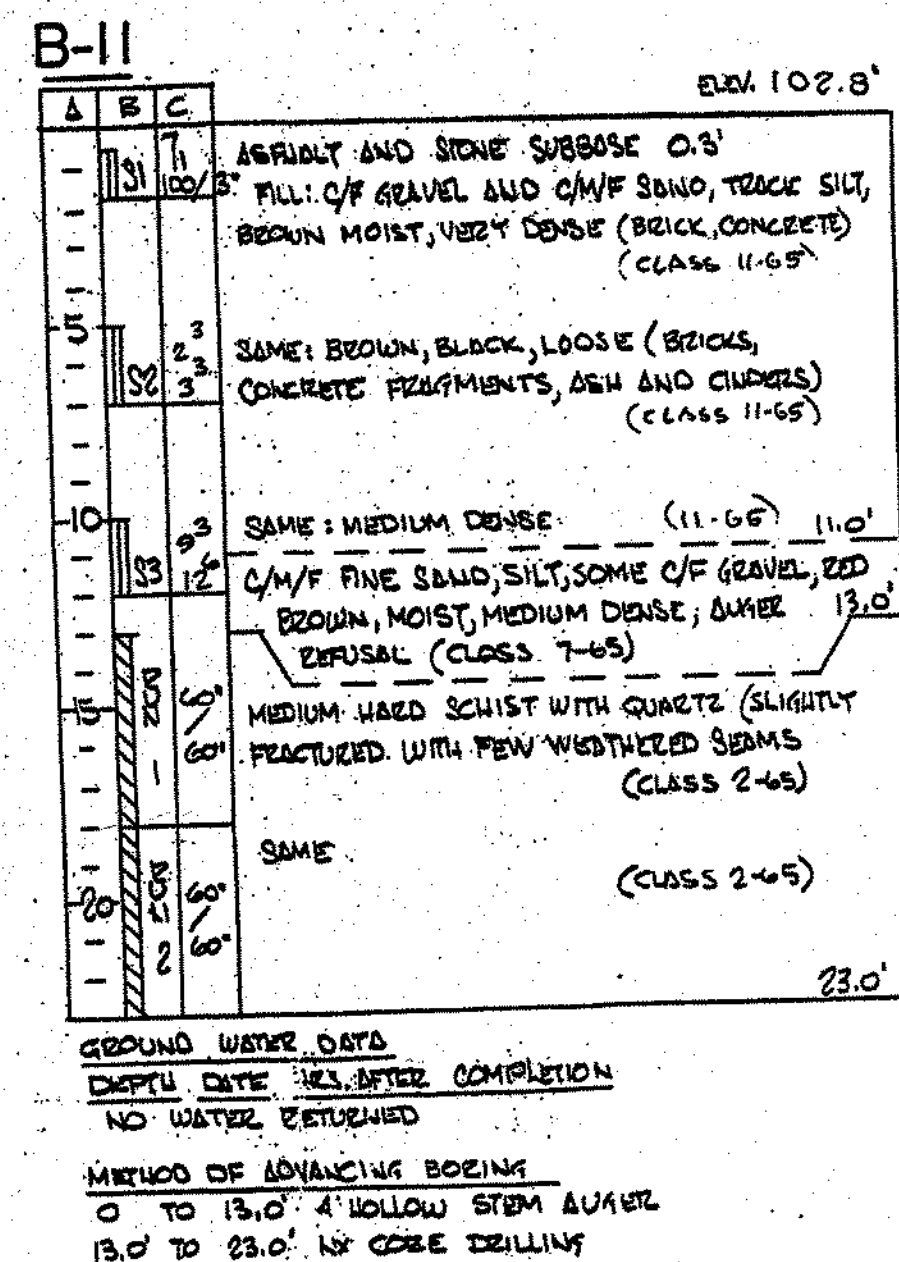 B-11
ELEV. 102.8'
A B C
S1 7 11 100/3"
ASPHALT AND STONE SUBBASE 0.3'
FILL: C/F GRAVEL AND C/M/F SAND, TRACE SILT,
BROWN MOIST, VERY DENSE (BRICK, CONCRETE)
(CLASS 11-65)
5
S2 3 2 3 3
SAME: BROWN, BLACK, LOOSE (BRICKS,
CONCRETE FRAGMENTS, ASH AND CINDERS)
(CLASS 11-65)
10
S3 3 9 6 12
SAME: MEDIUM DENSE (11-65) 11.0'
C/M/F FINE SAND, SILT, SOME C/F GRAVEL, RED
BROWN, MOIST, MEDIUM DENSE; AUGER 13.0'
REFUSAL (CLASS 7-65)
15
RUN 1 60"/60"
MEDIUM HARD SCHIST WITH QUARTZ (SLIGHTLY
FRACTURED WITH FEW WEATHERED SEAMS
(CLASS 2-65)
SAME
(CLASS 2-65)
20
RUN 2 60"/60"
23.0'
GROUND WATER DATA
DEPTH DATE HRS. AFTER COMPLETION
NO WATER RETURNED
METHOD OF ADVANCING BORING
0 TO 13.0' 4" HOLLOW STEM AUGER
13.0' TO 23.0' NX CORE DRILLING